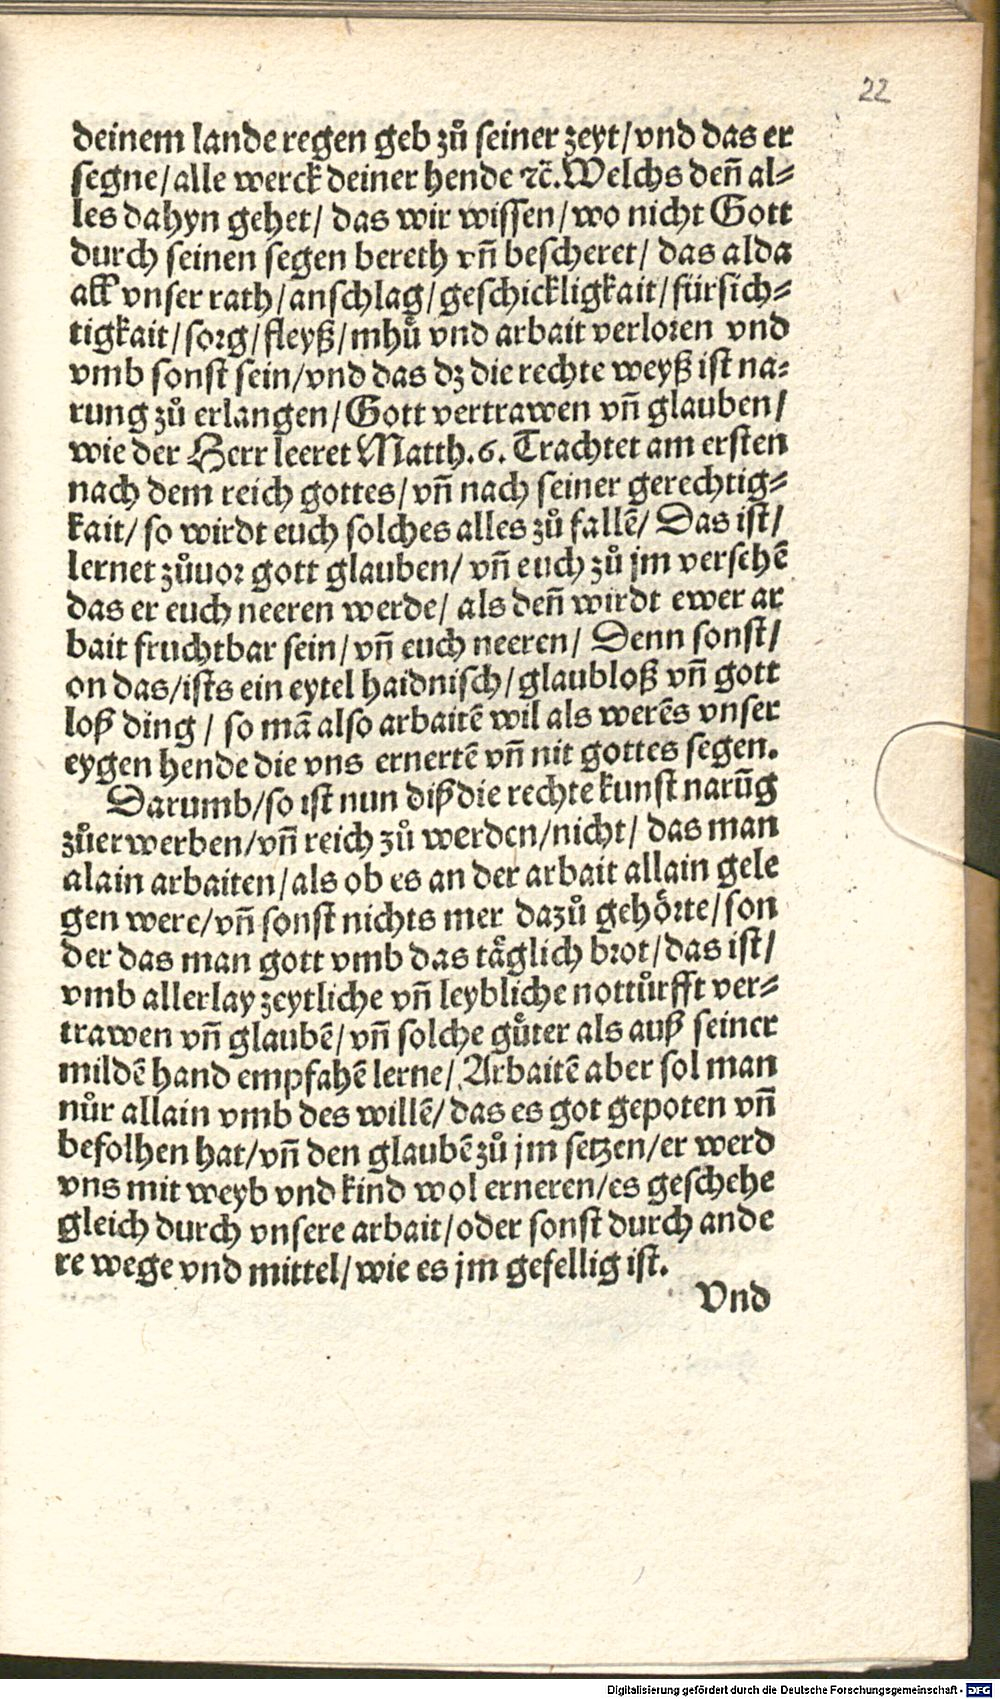 22
deinem lande regen geb zů seiner zeyt/vnd das er
segne/alle werck deiner hende ⁊c̃.Welchs deñ al⸗
les dahyn gehet/ das wir wissen/wo nicht Gott
durch seinen segen bereth vñ bescheret/ das alda
all vnser rath/anschlag/geschickligkait/fürsich⸗
tigkait/sorg/fleyß/mhů vnd arbait verloren vnd
vmb sonst sein/vnd das dz die rechte weyß ist na⸗
rung zů erlangen/Gott vertrawen vñ glauben/
wie der Herr leeret Matth.6. Trachtet am ersten
nach dem reich gottes/vñ nach seiner gerechtig⸗
kait/so wirdt euch solches alles zů fallē/ Das ist/
lernet zůuor gott glauben/ vñ euch zů jm versehē
das er euch neeren werde/ als deñ wirdt ewer ar
bait fruchtbar sein/vñ euch neeren/ Denn sonst/
on das/ists ein eytel haidnisch/glaubloß vñ gott
loß ding/ so mā also arbaitē wil als werēs vnser
eygen hende die vns ernertē vñ nit gottes segen.
Darumb/so ist nun diß die rechte kunst narūg
zůerwerben/vñ reich zů werden/nicht/ das man
alain arbaiten/als ob es an der arbait allain gele
gen were/vñ sonst nichts mer dazů gehörte/son
der das man gott vmb das täglich brot/das ist/
vmb allerlay zeytliche vñ leybliche nottůrfft ver⸗
trawen vñ glaubē/vñ solche gůter als auß seiner
mildē hand empfahē lerne/ Arbaitē aber sol man
nůr allain vmb des willē/das es got gepoten vñ
befolhen hat/vñ den glaubē zů jm setzen/er werd
vns mit weyb vnd kind wol erneren/es geschehe
gleich durch vnsere arbait/oder sonst durch ande
re wege vnd mittel/wie es jm gefellig ist.
Vnd
Digitalisierung gefördert durch die Deutsche Forschungsgemeinschaft - DFG